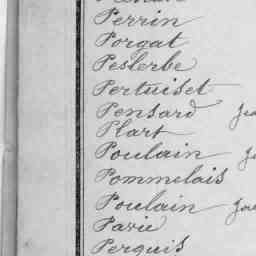 Perrin
Porgat
Peslerbe
Pertuiset
Pensard
Plart
Poulain
Pommelais
Poulain
Pavie
Perquis